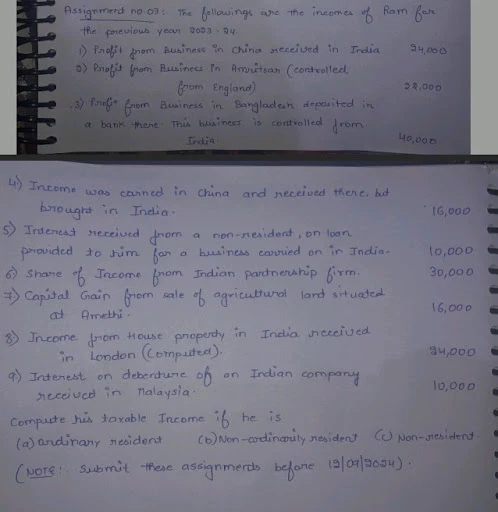 Assignment no-03: The followings are the incomes of Ram for
the previous year 2023-24.
1) Profit from Business in China received in India 24,000
2) Profit from Business in Amritsar (controlled
from England) 22,000
3) Profit from Business in Bangladesh deposited in
a bank there. This business is controlled from
India. 40,000
4) Income was earned in China and received there, but
brought in India. 16,000
5) Interest received from a non-resident, on loan
provided to him for a business carried on in India. 10,000
6) Share of Income from Indian partnership firm. 30,000
7) Capital Gain from sale of agricultural land situated
at Amethi. 16,000
8) Income from House property in India received
in London (Computed). 24,000
9) Interest on debenture of an Indian company
received in Malaysia. 10,000
Compute his taxable Income if he is
(a) ordinary resident (b) Non-ordinarily resident (c) Non-resident.
(NOTE: Submit these assignments before 12/09/2024).